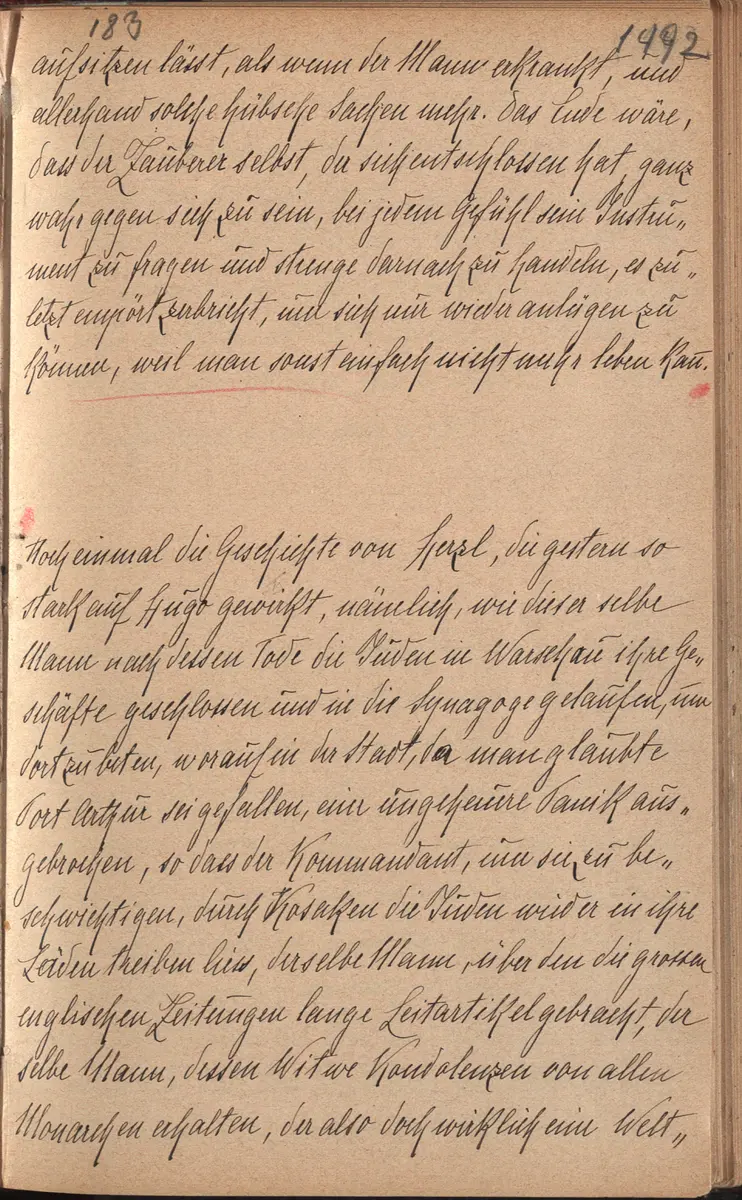 183
1492
aufsitzen lässt, als wenn der Mann erkrankt, und
allerhand solche hübsche Sachen mehr. Das Ende wäre,
dass der Zauberer selbst, der sich entschlossen hat, ganz
wahr gegen sich zu sein, bei jedem Gefühl sein Instru„
ment zu fragen und strenge darnach zu handeln, es zu„
letzt empört zerbricht, um sich nur wieder anlügen zu
können, weil man sonst einfach nicht mehr leben kan̅.
Noch einmal die Geschichte von Herzl, die gestern so
stark auf Hugo gewirkt, nämlich, wie dieser selbe
Mann nach dessen Tode die Juden in Warschau ihre Ge„
schäfte geschlossen und in die Synagoge gelaufen, um
dort zu beten, worauf in der Stadt, da man glaubte
Port Arthur sei gefallen, eine ungeheure Panik aus„
gebrochen, so dass der Kommandant, um sie zu be„
schwichtigen, durch Kosaken die Juden wieder in ihre
Läden treiben liess, derselbe Mann, über den die grossen
englischen Zeitungen lange Leitartikel gebracht, der
selbe Mann, dessen Witwe Kondolenzen von allen
Monarchen erhalten, der also doch wirklich eine Welt„